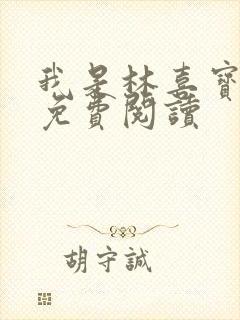 我是林喜寶
免費閱讀
胡守誠